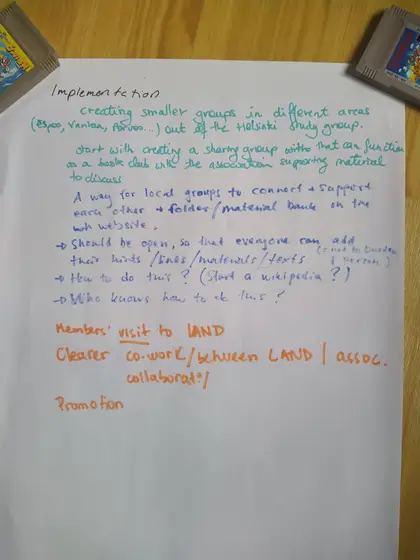 Implementation
creating smaller groups in different areas
(espoo, Vantaa, Porvoo...) out of the Helsinki study group.
start with creating a sharing group that can function
as a book club with the association supporting material
to discuss
A way for local groups to connect + support
each other → folder/material bank on the
website.
→ Should be open, so that everyone can add
their hints/lines/materials/texts (not to burden
1 person)
→ How to do this? (Start a wikipedia?)
→ Who knows how to do this?
Members' visit to LAND
Clearer co-work/between LAND / assoc.
collaborat°/
Promotion